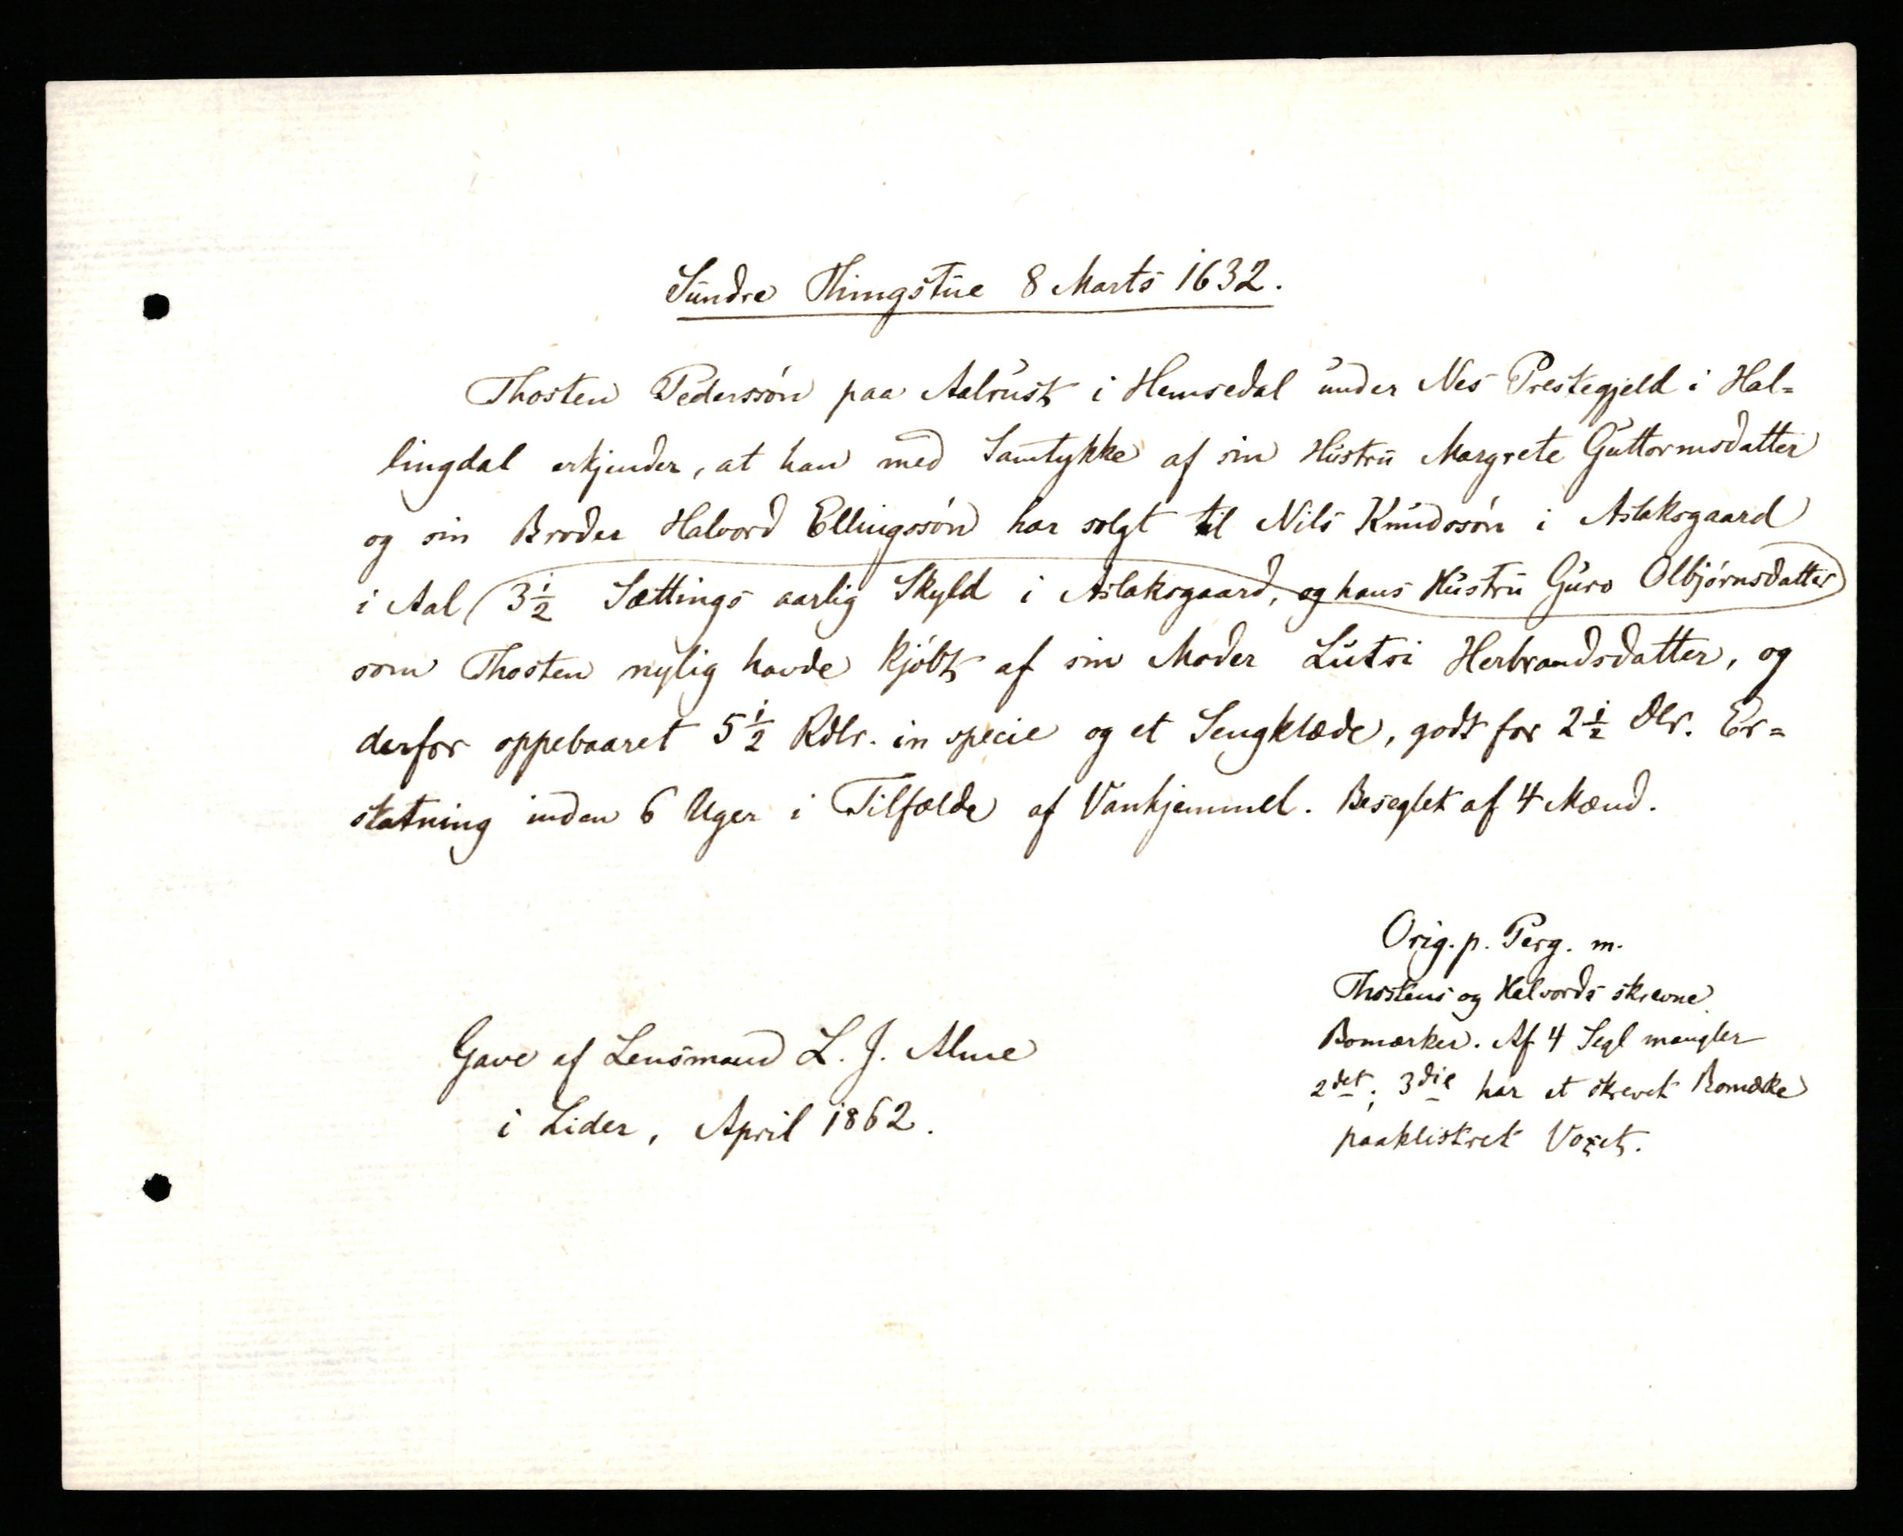 Sundre Thingstue 8 Marts 1632.
Thosten Pederssøn paa Aalrust i Hemsedal under Nes Prestegjeld i Hal=
lingdal erkjender, at han med Samtykke af sin Hustru Margrete Guttormsdatter
og sin Broder Halvord Ellingssøn har solgt til Nils Knudssøn i Aslaksgaard
i Aal (3 1/2 Sættings aarlig Skyld i Aslaksgaard, og hans Hustru Guro Olbjørnsdatter)
som Thosten nylig havde kjøbt af sin Moder Lutsi Herbrandsdatter, og
derfor oppebaaret 5 1/2 Rdlr. in specie og et Sengklæde, godt for 2 1/2 Dlr. Er=
statning inden 6 Uger i Tilfælde af Vanhjemmel. Beseglet af 4 Mænd.
Orig. p. Perg. m.
Thostens og Halvords skrevne
Bomærker. Af 4 Segl mangler
2det; 3die har et skrevet Bomærke
paaklistret Voxet.
Gave af Lensmand L. J. Alme
i Lider, April 1862.